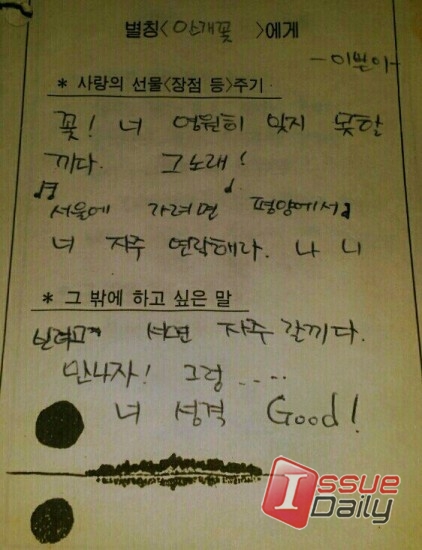 별칭<안개꽃 >에게
-이쁜아-
* 사랑의 선물<장점 등>주기
꽃! 너 영원히 잊지 못할
끼다. 그노래!
♬ 서울에 가려면 평양에서♪
너 자주 연락해라. 나 니
* 그 밖에 하고 싶은 말
서면 자주 갈끼다.
만나자! 그렁....
너 성격 Good!
Issue
Daily